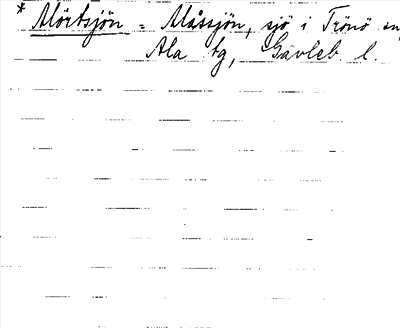 * Mörtsjön = Måssjön, sjö i Trönö sn,
Ala tg, Gävleb. l.